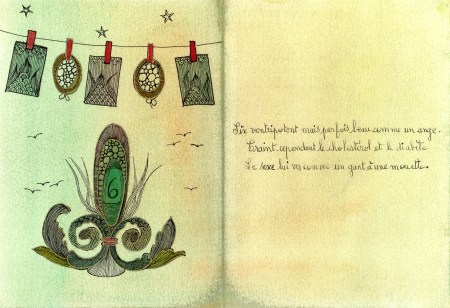 6
Six ventripotent mais parfois beau comme un ange.
Craint cependant le cholestérol et le diabète
Le sexe lui va comme un gant à une mouette.